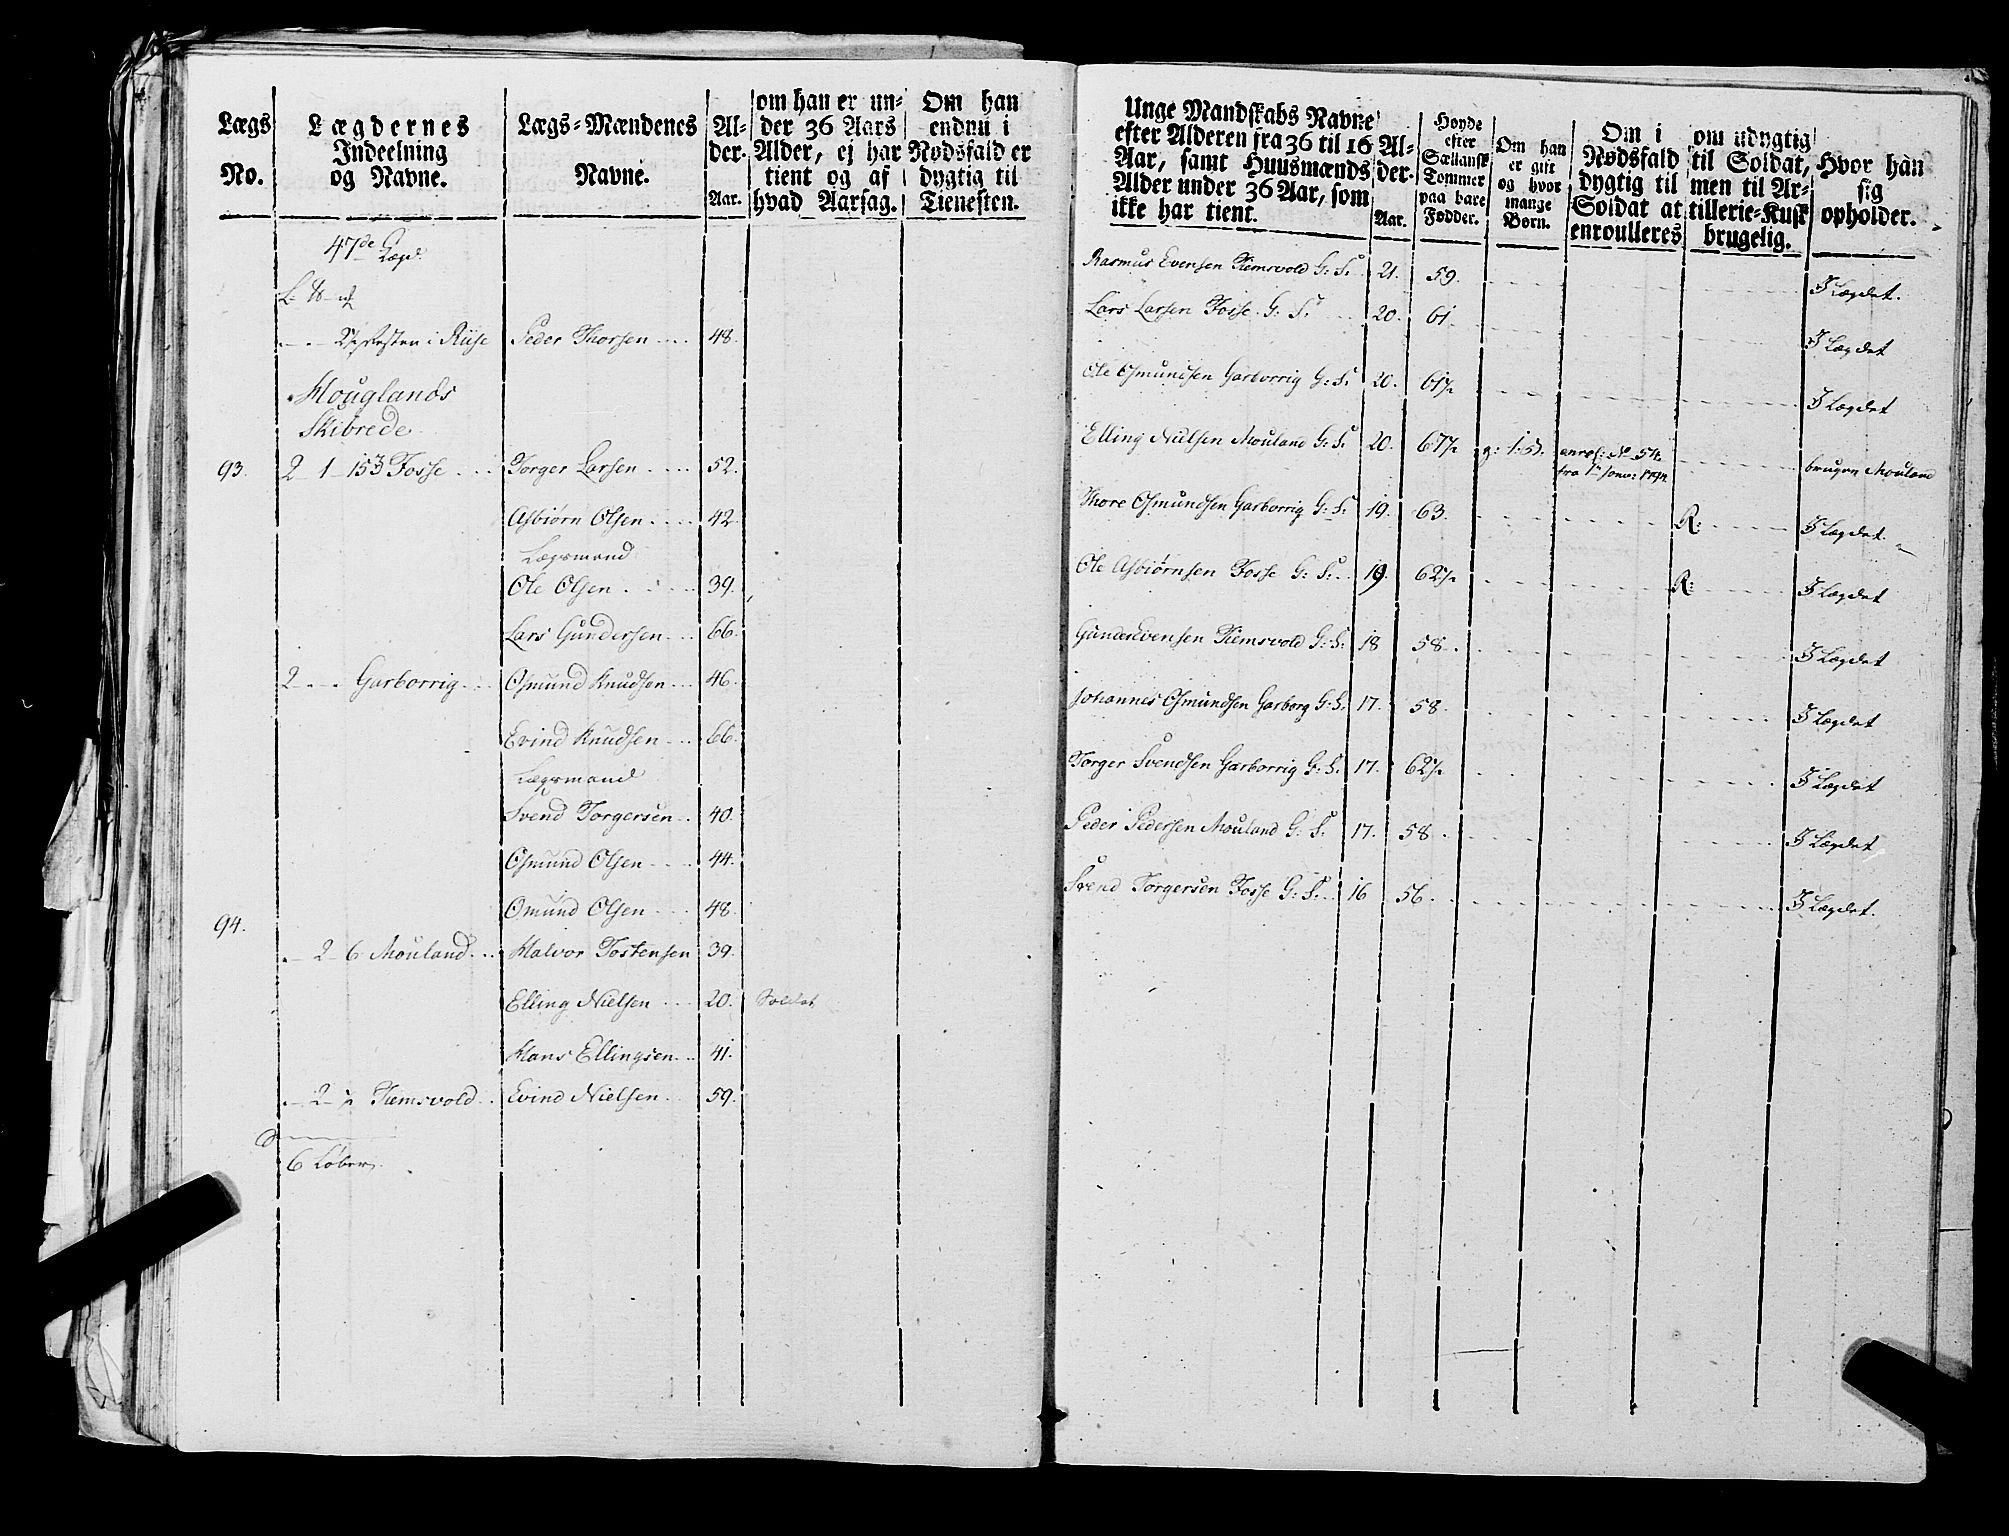 Lægs No.
Lægdernes Indeelning og Navne.
Lægs-Mændenes Navne.
Alder. Aar.
om han er under 36 Aars Alder, ej har tient og af hvad Aarsag.
Om han endnu i Nødsfald er dygtig til Tienesten.
47de Lægd.
i Riise Peder Thorsen 48.
Houglands
Skibrede
93. 2 1 Fosse Torger Larsen 52.
Asbiørn Olsen 42.
Lægsmand
Ole Olsen 39.
Lars Gundersen 66.
2 Garborrig Osmund Knudsen 46.
Evind Knudsen 66.
Lægsmand
Svend Torgersen 40.
Osmund Olsen 44.
94. Omund Olsen 48.
2 6 Mouland Halvor Tostensen 39.
Elling Nielsen 20. Soldat
Hans Ellingsen 41.
2 Tiemsvold Evind Nielsen 59.
6 Løber
Unge Mandskabs Navne efter Alderen fra 36 til 16 Aar, samt Huusmænds Alder under 36 Aar, som ikke har tient.
Alder. Aar.
Høyde efter Siællansk Tommer paa bare Fødder.
Om han er gift og hvor mange Børn.
Om i Nødsfald dygtig til Soldat at enroulleres
om udygtig til Soldat, men til Artillerie-Kusk brugelig.
Hvor han sig opholder.
Rasmus Evensen Tiemsvold G: S: 21. 59. I Lægdet.
Lars Larsen Fosse G: S: 20. 61. I Lægdet
Ole Osmundsen Garborrig G: S: 20. 61½ I Lægdet
Elling Nielsen Mouland G: S: 20. 67½ g: 1: D. enrol: No 54. bruger Mouland
Thore Osmundsen Garborrig G: S: 19. 63. R: I Lægdet.
Ole Asbiørnsen Fosse G: S: 19. 62½ R: I Lægdet
Gunder Evensen Tiemsvold G: S: 18 58. I Lægdet
Johannes Osmundsen Garborg G: S. 17. 58. I Lægdet
Torger Svendsen Garborrig G: S. 17. 62½ I Lægdet
Peder Pedersen Mouland G: S. 17. 58. I Lægdet
Svend Torgersen Fosse G: S. 16 56. I Lægdet.